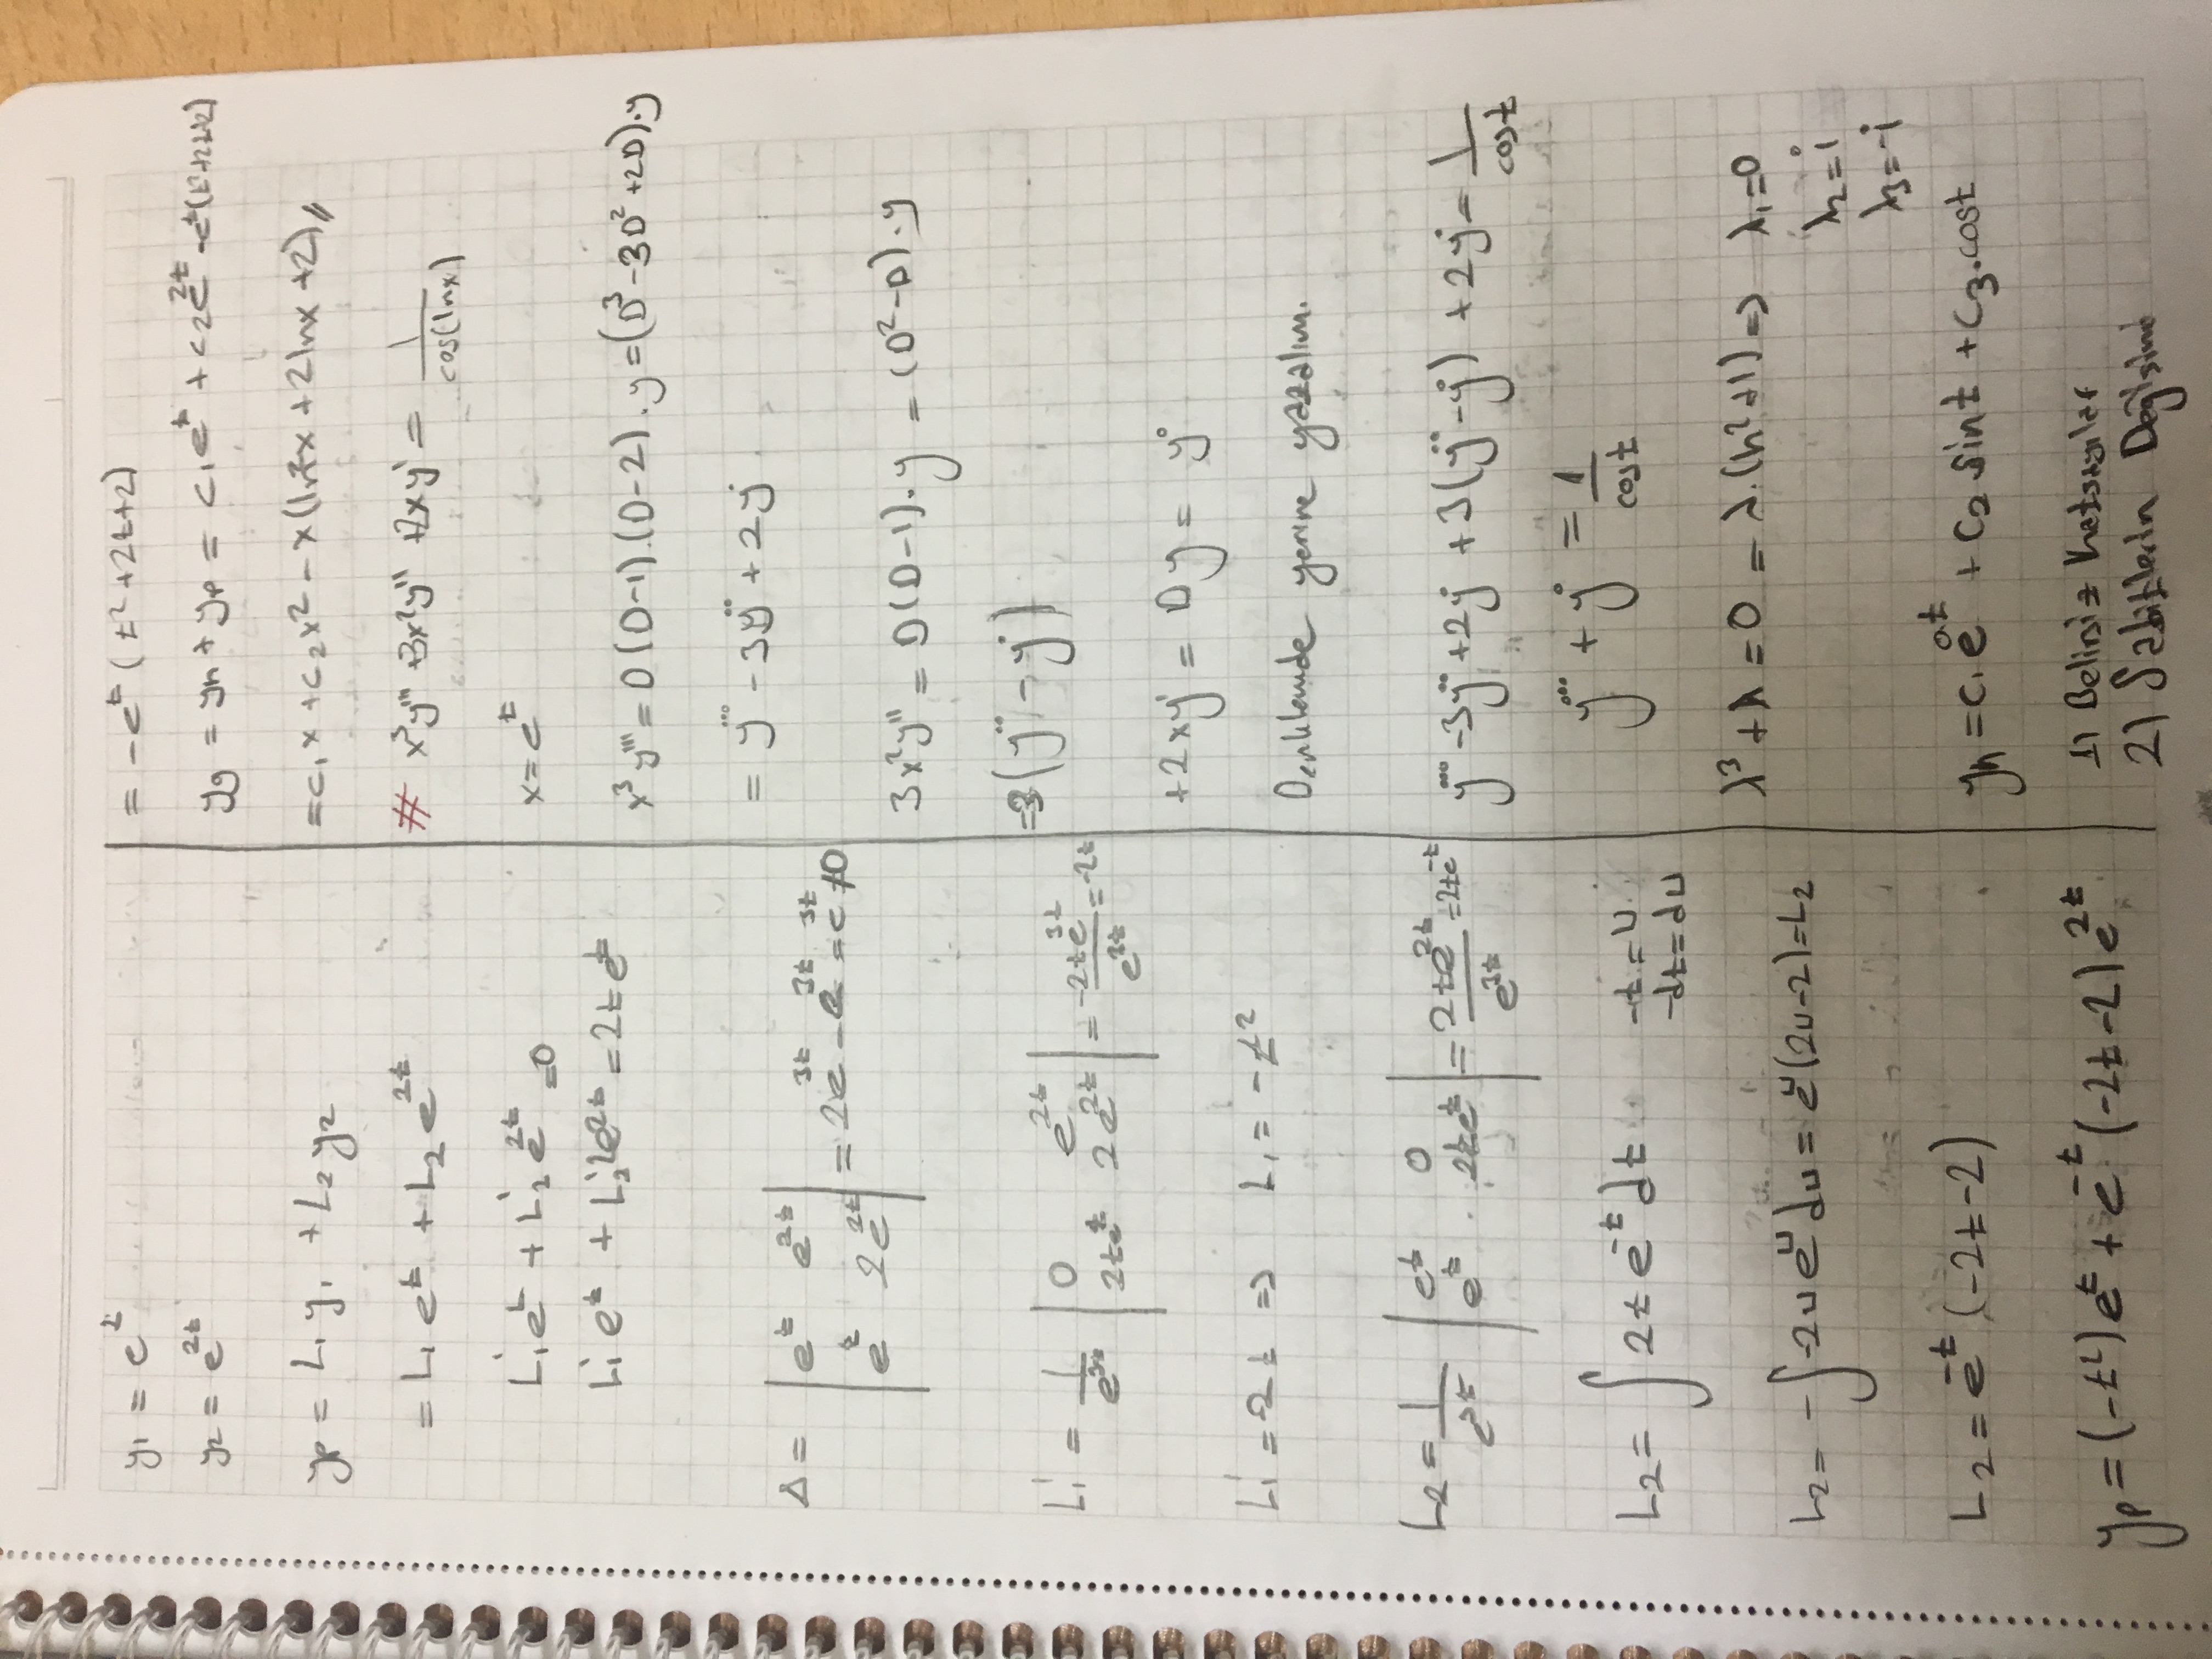 y₁ = eᵗ
y₂ = e²ᵗ
yp = L₁y₁ + L₂y₂
= L₁eᵗ + L₂e²ᵗ
L₁'eᵗ + L₂'e²ᵗ = 0
L₁'eᵗ + L₂'2e²ᵗ = 2teᵗ
Δ = | eᵗ e²ᵗ |
| eᵗ 2e²ᵗ | = 2e³ᵗ - e³ᵗ = e³ᵗ ≠ 0
L₁' = 1/e³ᵗ | 0 e²ᵗ |
| 2teᵗ 2e²ᵗ | = -2te³ᵗ/e³ᵗ = -2t
L₁' = -2t => L₁ = -t²
L₂ = 1/e³ᵗ | eᵗ 0 |
| eᵗ 2teᵗ | = 2te²ᵗ/e³ᵗ = 2te⁻ᵗ
L₂ = ∫ 2te⁻ᵗdt -t = u
-dt = du
L₂ = -∫-2ueᵘdu = eᵘ(2u-2) = L₂
L₂ = e⁻ᵗ(-2t-2)
yp = (-t²)eᵗ + e⁻ᵗ(-2t-2)e²ᵗ
= -eᵗ(t²+2t+2)
yg = yh + yp = c₁eᵗ + c₂e²ᵗ - eᵗ(t²+2t+2)
= c₁x + c₂x² - x(ln²x + 2lnx + 2)//
# x³y''' + 3x²y'' + 2xy' = 1/cos(lnx)
x = eᵗ
x³y''' = D(D-1).(D-2).y = (D³-3D²+2D).y
= y⃛ - 3ÿ + 2ẏ
3x²y'' = D(D-1).y = (D²-D).y
=3(ÿ - ẏ)
+2xy' = Dy = ẏ
Denklemde yerine yazalım.
y⃛ - 3ÿ + 2ẏ + 3(ÿ - ẏ) + 2ẏ = 1/cost
y⃛ + ẏ = 1/cost
λ³ + λ = 0 = λ.(λ²+1) => λ₁ = 0
λ₂ = i
λ₃ = -i
yh = c₁e⁰·ᵗ + c₂ sint + c₃.cost
1) Belirsiz Katsayılar
2) Sabitlerin Değişimi